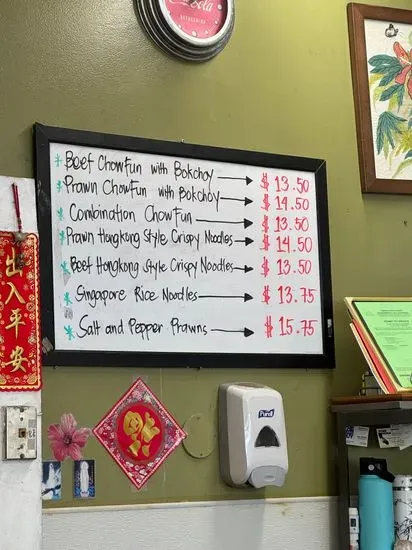 Cola
Beef Chow Fun with Bokchoy → $ 13.50
Prawn Chow Fun with Bokchoy → $ 14.50
Combination Chow Fun → $ 13.50
Prawn Hongkong Style Crispy Noodles → $ 14.50
Beef Hongkong Style Crispy Noodles → $ 13.50
Singapore Rice Noodles → $ 13.75
Salt and Pepper Prawns → $ 15.75
出入平安
PURELL